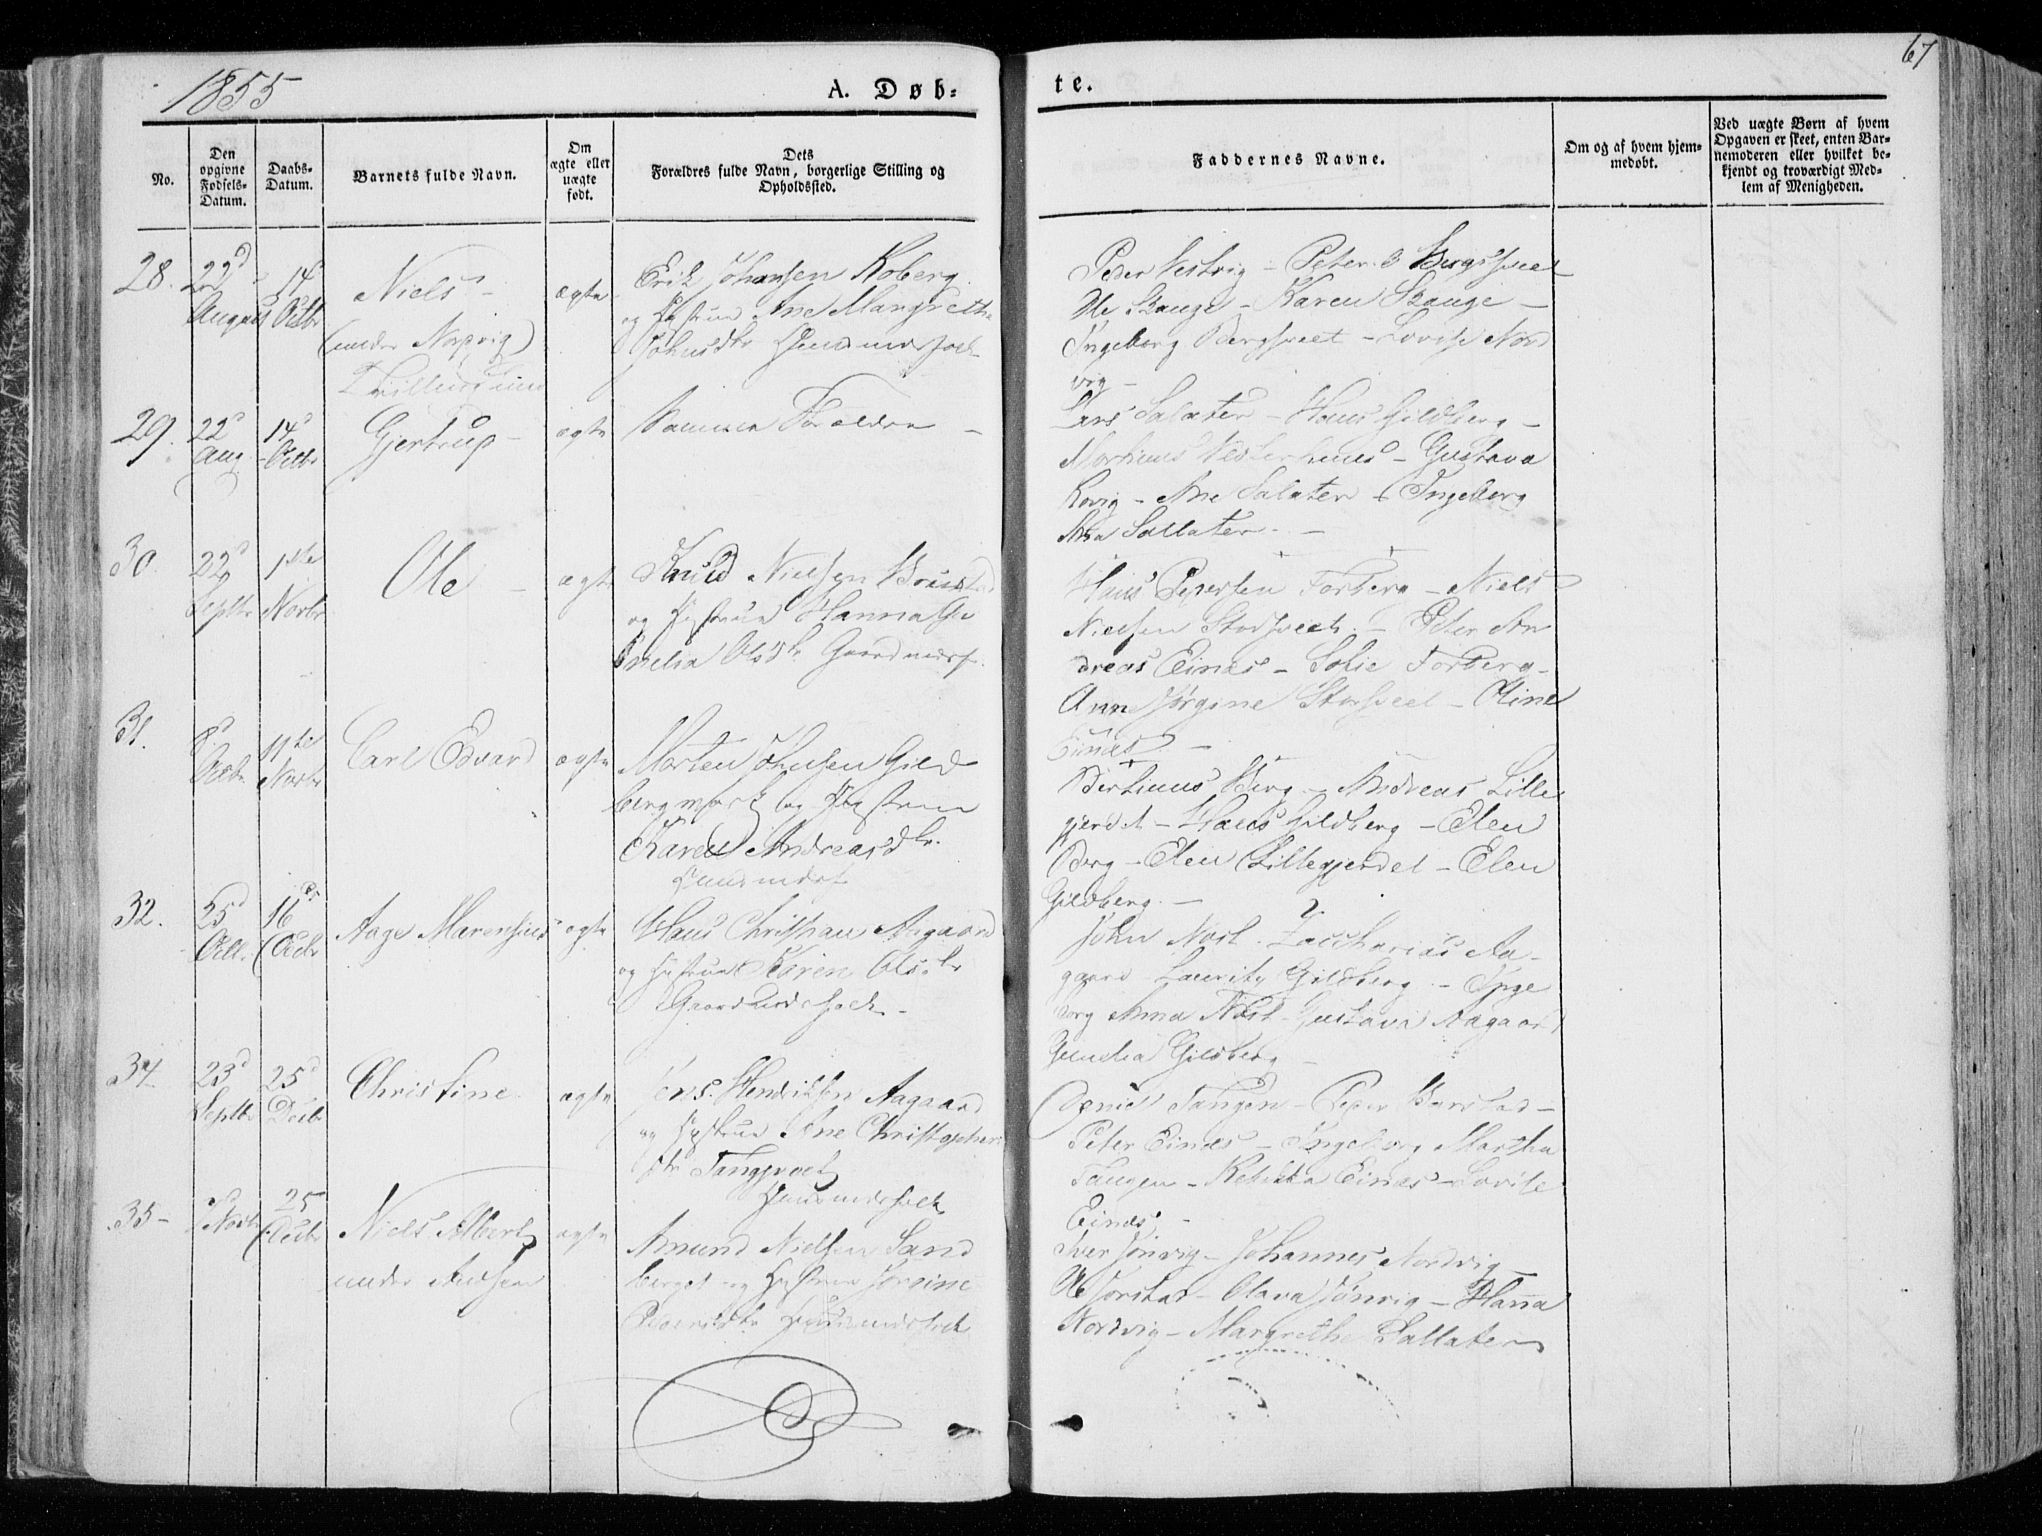 1855
A. Døb-
te.
67
No.
Den
opgivne
Fødsels-
Datum.
Daabs-
Datum.
Barnets fulde Navn.
Om
ægte eller
uægte
født.
Dets
Forældres fulde Navn, borgerlige Stilling og
Opholdssted.
Faddernes Navne.
Om og af hvem hjem-
medøbt.
Ved uægte Børn af hvem
Opgaven er skeet, enten Bar-
nemoderen eller hvilket be-
kjendt og troværdigt Med-
lem af Menigheden.
28.
22d
August
14
Octbr
Niels
Tvilling
ægte
Erik Johansen Koberg
og Hustrue Ane Margrethe
Johnsdtr Huusmdsfolk
Peder Vestvig - Peter Bergsveet
Ole Skauge - Karen Skauge -
Ingeborg Bergsveet - Lovise Nord
vig -
29.
22d
Aug
14d
Octbr
Gjertrup -
ægte
Samme Forældre -
Lars Salater - Hans Gildberg -
Martinus Vesterhuus - Gustava
- Ane Salater - Ingeborg
Ana Sallater -
30.
22d
Septbr
1ste
Novbr
Ole -
ægte
Knuld Nielsen
og Hustrue Hanna
Olsdtr Gaardmdsf.
Hans Pedersen Forberg - Niels
Nielsen Storsveet - Peter An
dreas Eines - Sofie Forberg -
Anne Jørgine Storsveet - Oline
Eines -
31.
8d
Octbr
11te
Novbr
Carl Edvard
ægte
Morten Johnsen Gild
bergmark og Hustrue
Karen Andreasdtr.
Huusmdsf
Bertinus Berg - Andreas Lille
gjerdet - Hans Gildberg - Elen
Berg - Elen Lillegjerdet - Elen
Gildberg -
32.
25d
Oct.
16de
Aage Marensius
ægte
Hans Christian Aagaard
og Hustrue Karen Olsdtr
Gaardmdsfolk -
John Nost. Zaccharias Aa-
gaard - Lauritz Gildberg - Inge
borg Anna Nost - Gustava Aagaard
Gildberg -
34.
23d
Septbr
25d
Decbr
Christine
ægte
Jens Hendriksen Aagaard
og Hustrue Ane Christopher
sdtr Tangsveet
Huusmdsfolk
Tangen - Peder Barstad -
Peter Eines - Ingeborg Martha
Tangen - Eines - Lovise
Eines -
35 -
Novbr
25
Decbr
Niels Albert
ægte
Amund Nielsen Sand
berget og Hustrue Jørgine
Huusmdsfolk
Iver Jönvig - Johannes Nordvig -
Olava Jönvig - Hanna
Nordvig - Margrethe Sallater